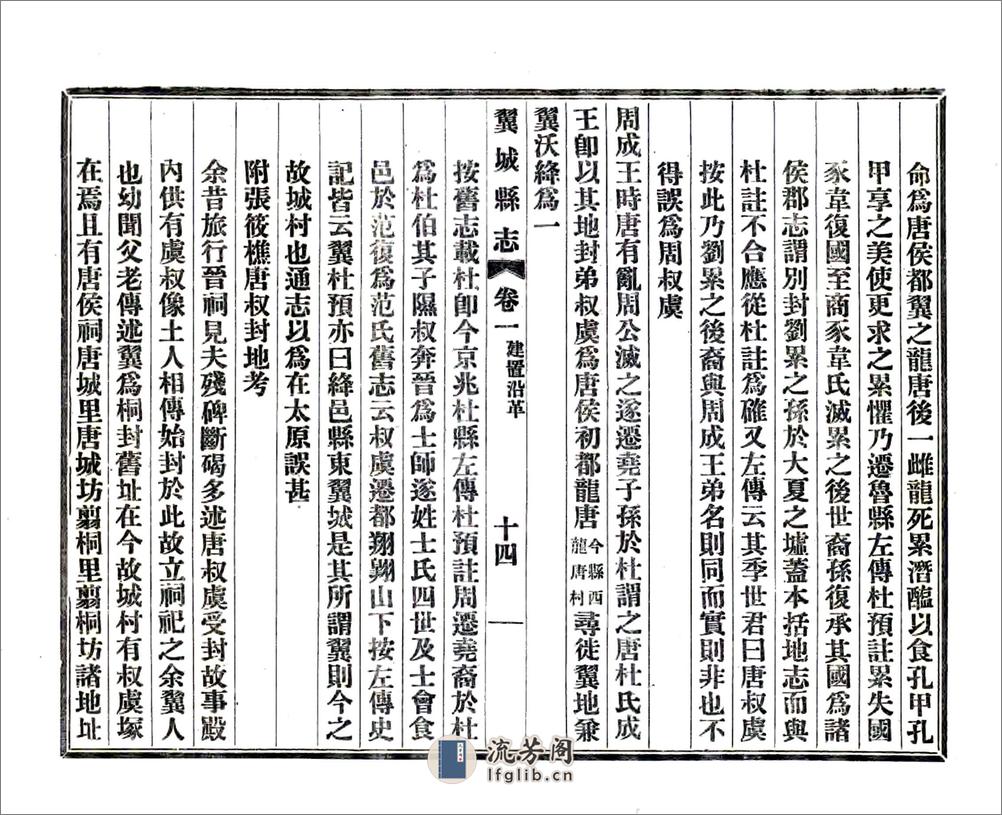 命爲唐侯都翼之龍唐後一雌龍死累潛醢以食孔甲孔
甲享之美使更求之累懼乃遷魯縣左傳杜預註累失國
豕韋復國至商豕韋氏滅累之後世裔孫復承其國爲諸
侯郡志謂別封劉累之孫於大夏之墟蓋本括地志而與
杜註不合應從杜註爲確又左傳云其季世君曰唐叔虞
按此乃劉累之後裔與周成王弟名則同而實則非也不
得誤爲周叔虞
周成王時唐有亂周公滅之遂遷堯子孫於杜謂之唐杜氏成
王卽以其地封弟叔虞爲唐侯初都龍唐今縣西龍唐村尋徙翼地兼
翼沃絳爲一
翼城縣志 卷一 建置沿革 十四
按舊志載杜卽今京兆杜縣左傳杜預註周遷堯裔於杜
爲杜伯其子隰叔奔晉爲士師遂姓士氏四世及士會食
邑於范復爲范氏舊志云叔虞遷都翔翺山下按左傳史
記皆云翼杜預亦曰絳邑縣東翼城是其所謂翼則今之
故城村也通志以爲在太原誤甚
附張筱樵唐叔封地考
余昔旅行晉祠見夫殘碑斷碣多述唐叔虞受封故事殿
內供有虞叔像土人相傳始封於此故立祠祀之余翼人
也幼聞父老傳述翼爲桐封舊址在今故城村有叔虞塚
在焉且有唐侯祠唐城里唐城坊翦桐里翦桐坊諸地址
流芳阁
lfglib.cn